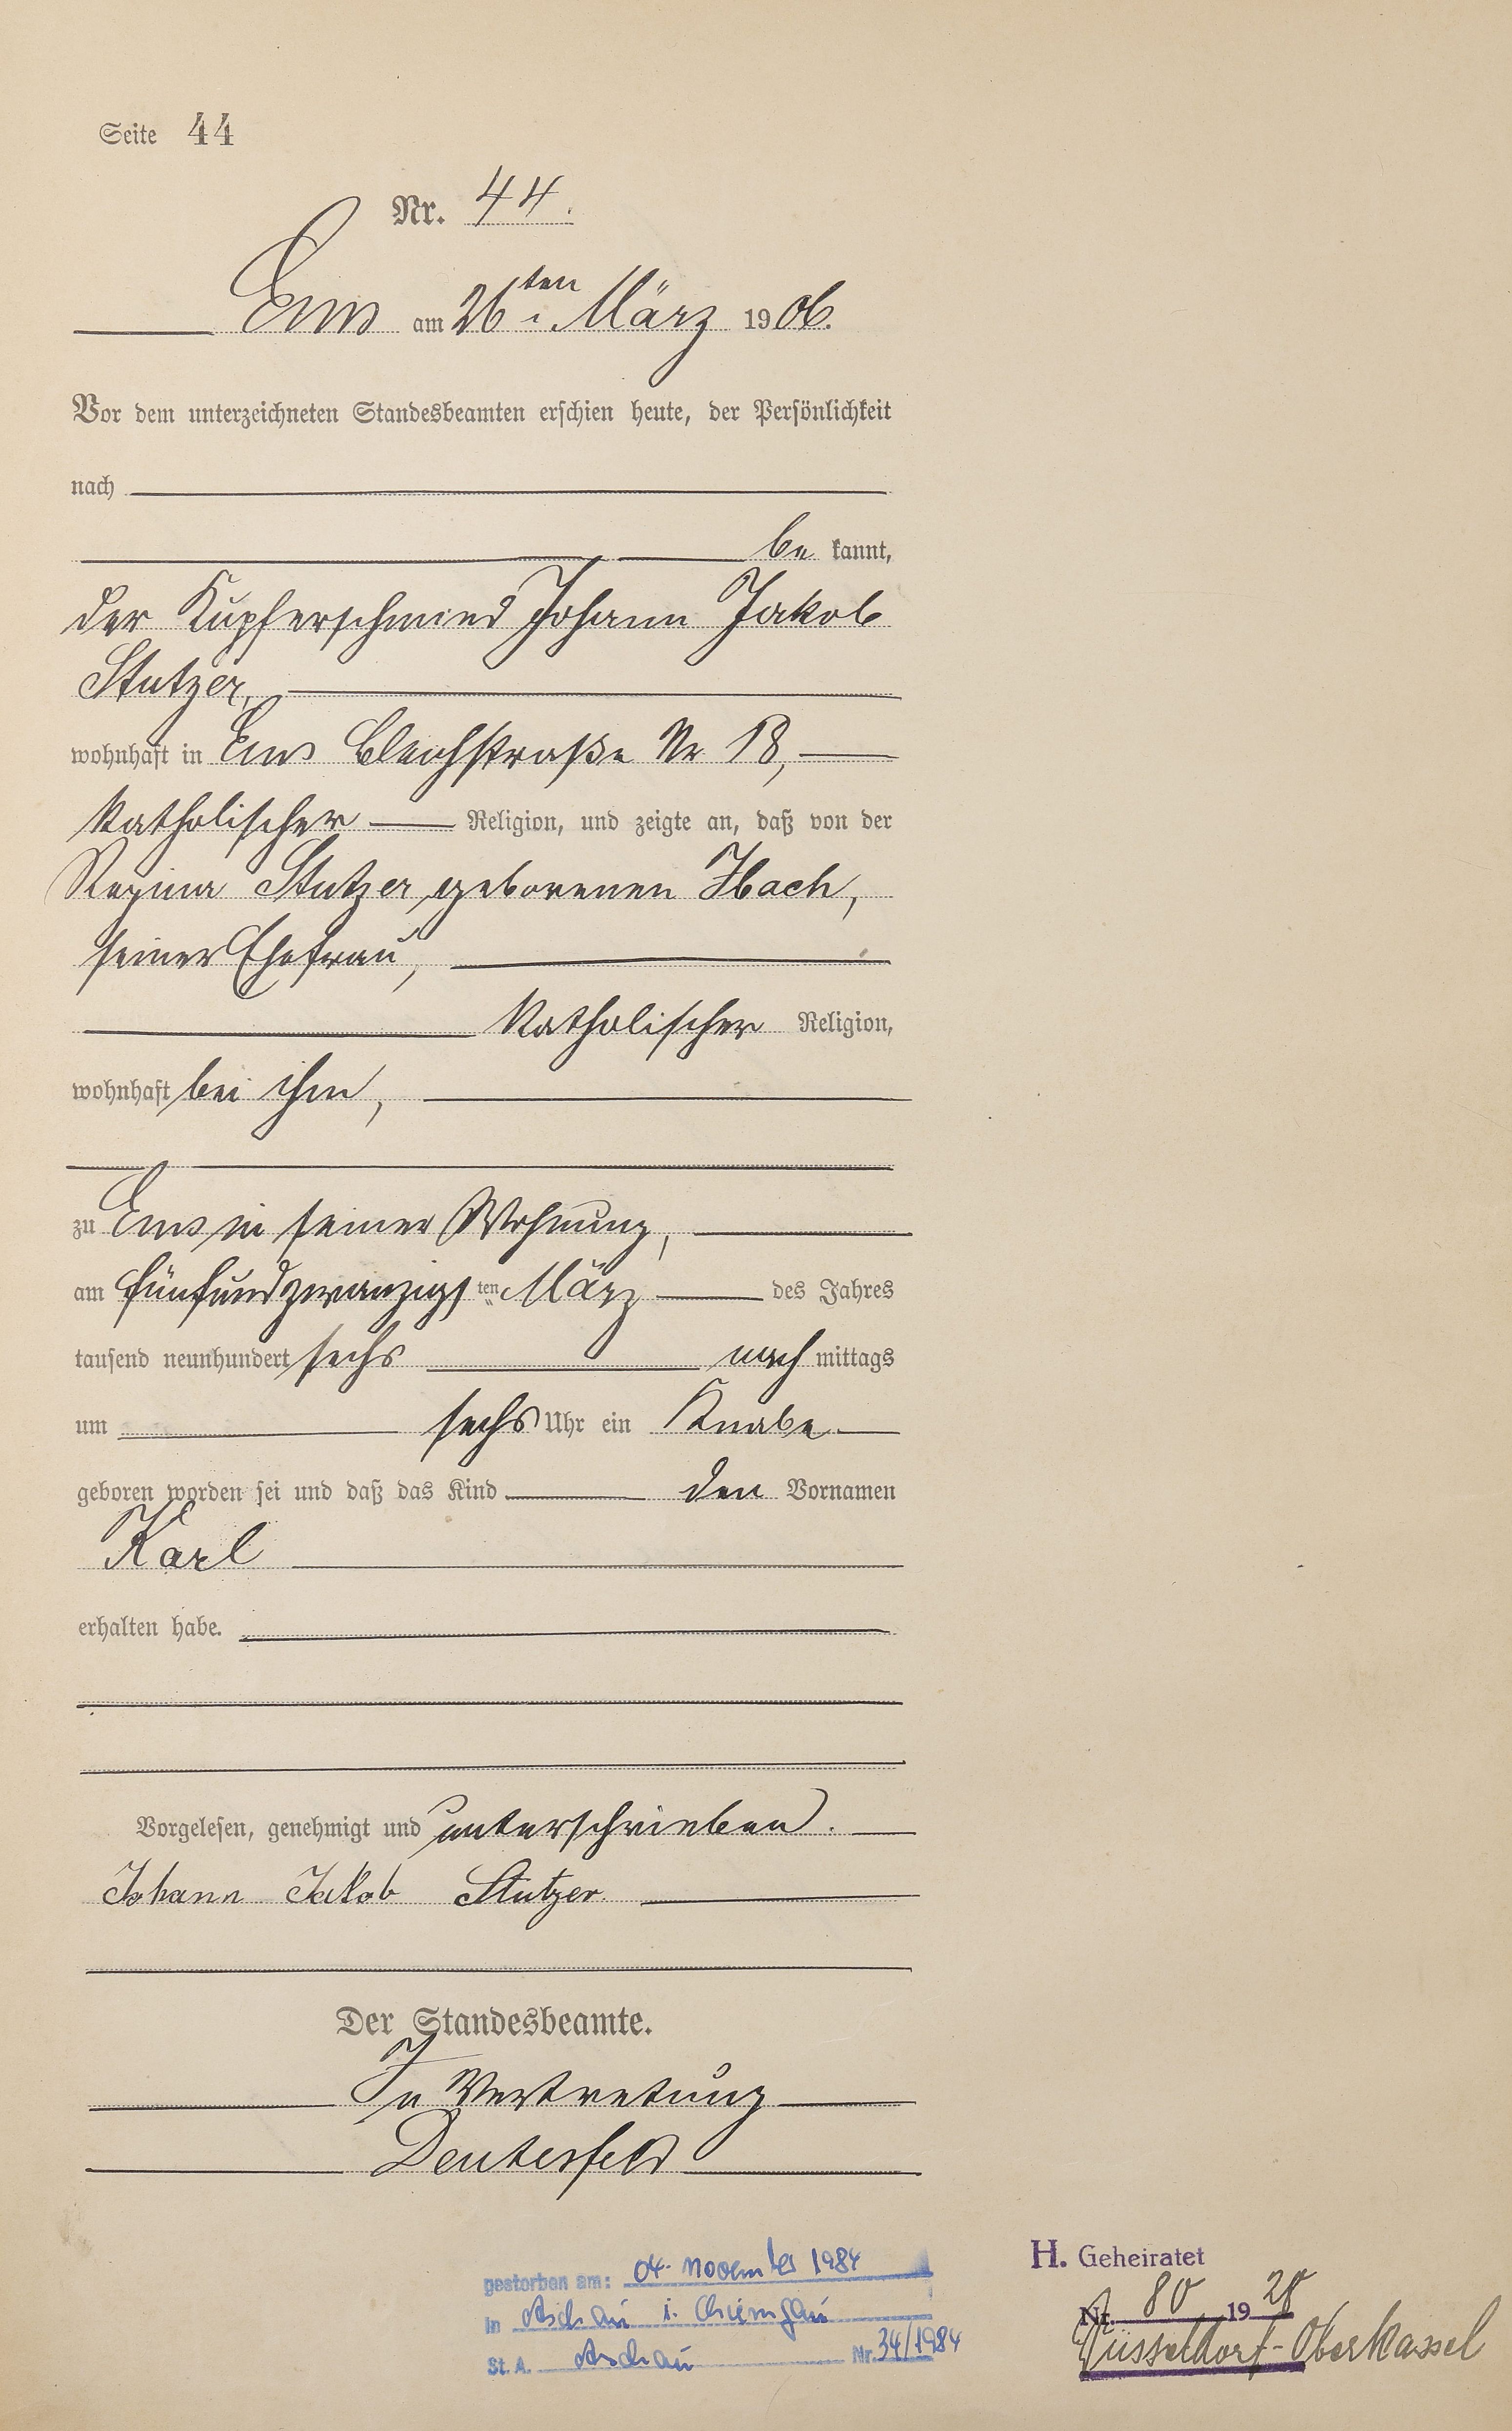 Seite 44
Nr. 44.
Ems am 26ten März 1906.
Vor dem unterzeichneten Standesbeamten erschien heute, der Persönlichkeit
nach
be kannt,
der Kupferschmied Johann Jakob
Stutzer,
wohnhaft in Ems Bleichstraße Nr 18,
katholischer Religion, und zeigte an, daß von der
Regina Stutzer, geborenen Ibach,
seiner Ehefrau,
katholischer Religion,
wohnhaft bei ihm,
zu Ems in seiner Wohnung,
am fünfundzwanzigsten März des Jahres
tausend neunhundert sechs nach mittags
um sechs Uhr ein Knabe
geboren worden sei und daß das Kind den Vornamen
Karl
erhalten habe.
Vorgelesen, genehmigt und unterschrieben.
Johann Jakob Stutzer
Der Standesbeamte.
In Vertretung
Deutesfeld
gestorben am: 04. November 1984
in Aschau i. Chiemgau
St. A. Aschau Nr. 34/1984
H. Geheiratet
Nr. 80 1928
Düsseldorf-Oberkassel